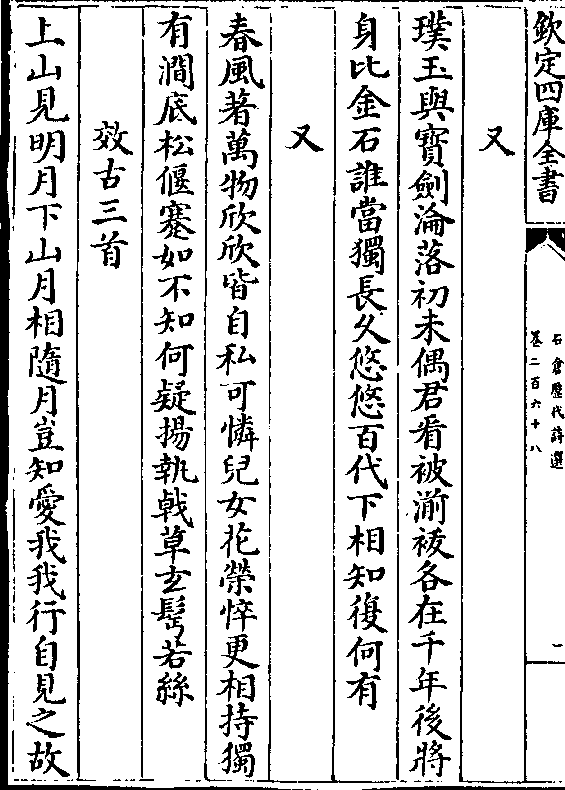 欽定四庫全書
石倉歴代詩選
卷二百六十八
一
又
璞玉與寳劍淪落初未偶君看被湔祓各在千年後將
身比金石誰當獨長久悠悠百代下相知復何有
又
春風著萬物欣欣皆自私可憐兒女花榮悴更相持獨
有澗底松偃蹇如不知何疑揚執㦸草玄髩若絲
效古三首
上山見明月下山月相隨月豈知愛我我行自見之故